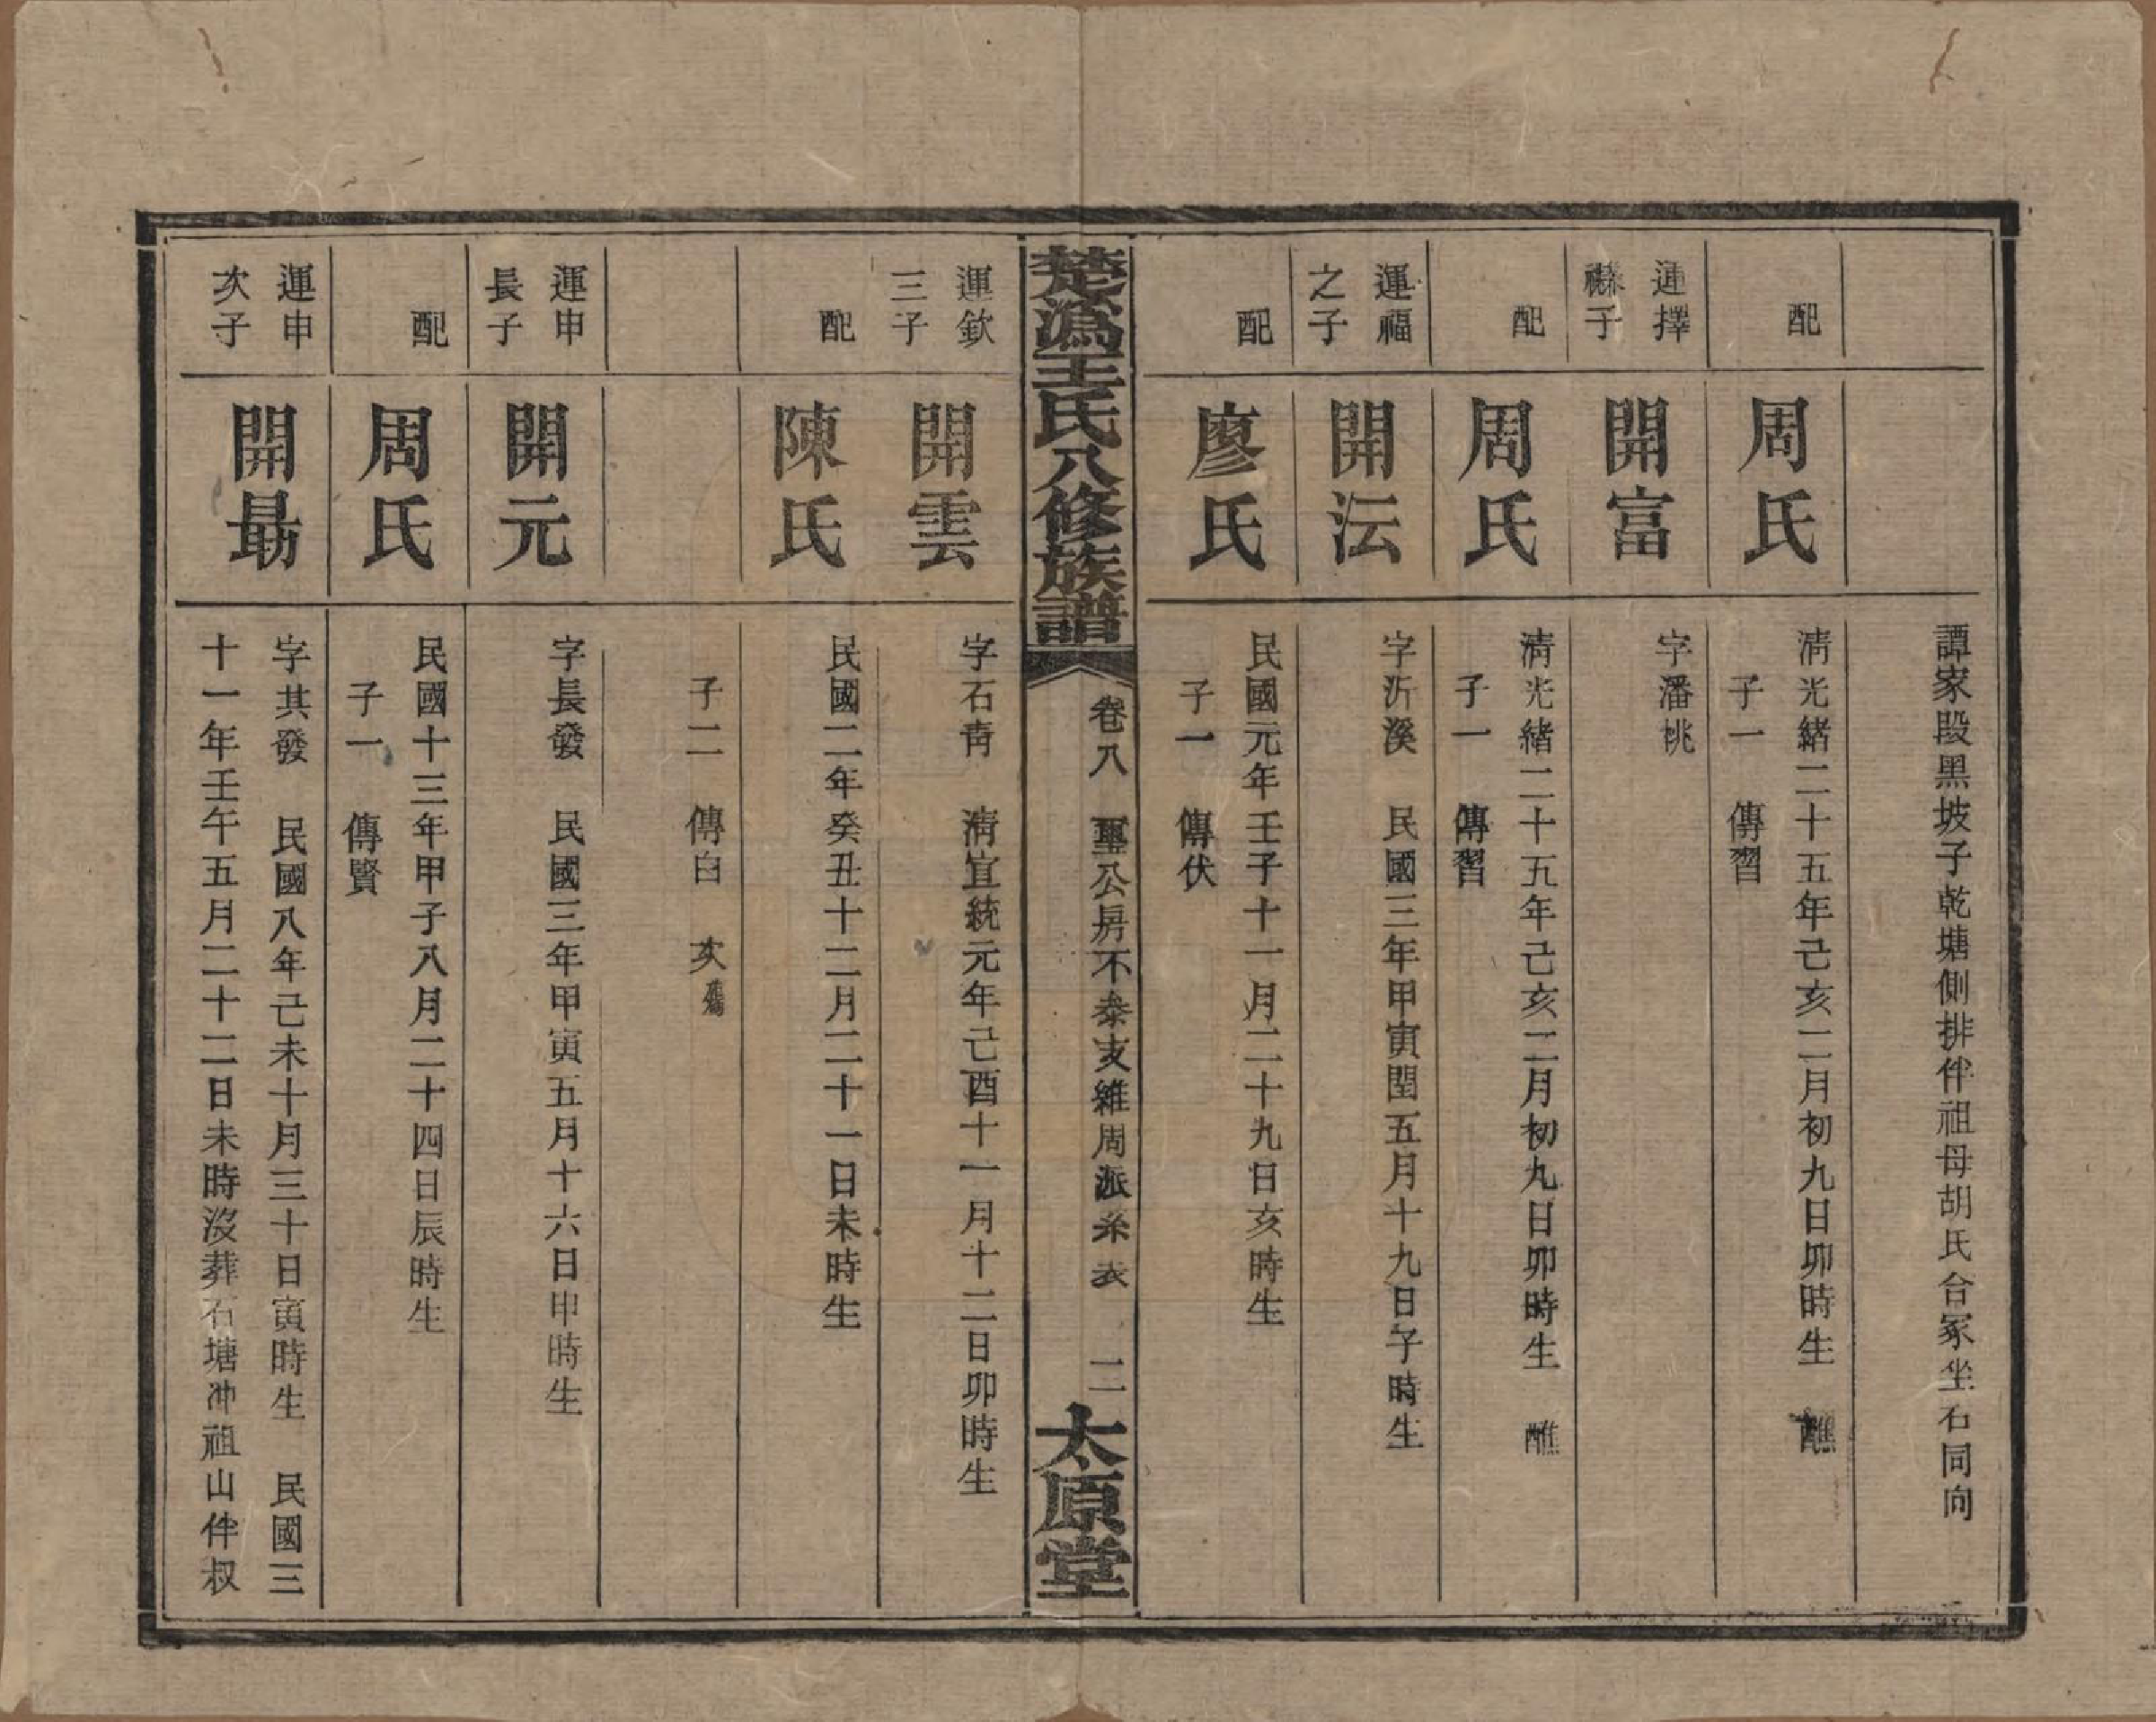 譚家段黑坡子乾塘側排伴祖母胡氏合冢坐石同向
配
周氏
清光緒二十五年己亥二月初九日卯時生 醮
子一 傳習
運擇
子
開富
字潘桃
配
周氏
清光緒二十五年己亥二月初九日卯時生 醮
子一 傳習
運福
之子
開沄
字沂溪 民國三年甲寅閏五月十九日子時生
配
廖氏
民國元年壬子十一月二十九日亥時生
子一 傳伏
楚溈王氏八修族譜
卷八 璽公房不泰支維周派系表 二
太原堂
運欽
三子
開雲
字石青 清宣統元年己酉十一月十二日卯時生
配
陳氏
民國二年癸丑十二月二十一日未時生
子二 傳白 次
運申
長子
開元
字長發 民國三年甲寅五月十六日申時生
配
周氏
民國十三年甲子八月二十四日辰時生
子一 傳賢
運申
次子
開勗
字其發 民國八年己未十月三十日寅時生 民國三
十一年壬午五月二十二日未時沒葬石塘冲祖山伴叔